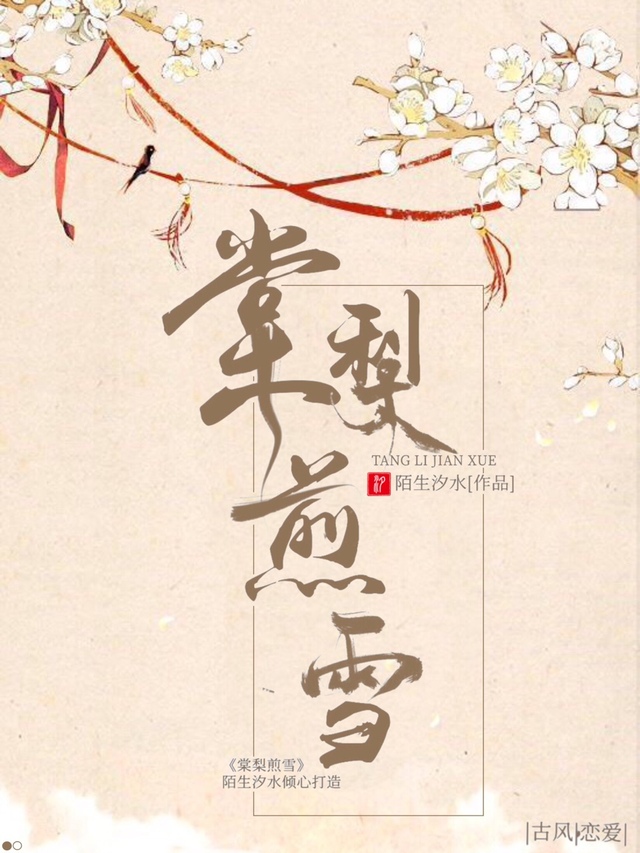 棠梨
煎雪
TANG LI JIAN XUE
陌生汐水[作品]
《棠梨煎雪》
陌生汐水倾心打造
|古风|恋爱|